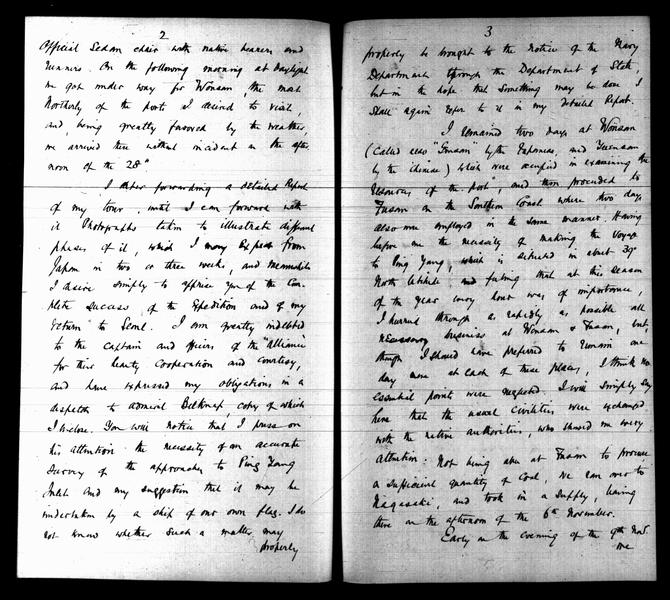 2
Official Sedan chair with native bearers and
runners. On the following morning at daylight
we got under way for Wonsan, the most
Northerly of the ports I desired to visit,
and, being greatly favored by the weather,
we arrived there without incident on the after
noon of the 28"
I defer forwarding a detailed Report
of my tour, until I can forward with
it Photographs taken to illustrate different
phases of it, which I may expect from
Japan in two or three weeks, and meanwhile
I desire simply to apprise you of the Com-
plete success of the Expedition and of my
return to Seoul. I am greatly indebted
to the captain and officers of the "Alliance"
for their hearty cooperation and courtesy,
and have expressed my obligations in a
despatch to admiral Belknap, copy of which
I enclose. You will notice that I press on
his attention the necessity of an accurate
survey of the approaches to Ping Yang
Inlet and my suggestion that it may be
undertaken by a ship of our own flag. I do
not know whether such a matter may
properly
3
properly be brought to the notice of the Navy
Department through the Department of State,
but in the hope that something may be done I
shall again refer to it in my detailed Report.
I remained two days at Wonsan
(Called also "Gensan" by the Japanese, and Yuensan
by the Chinese) which were occupied in examining the
resources of the port, and then proceeded to
Fusan on the Southern Coast where two days
also were employed in the same manner. Having
before me the necessity of making the voyage
to Ping Yang, which is situated in about 39°
North latitude and feeling that at this season
of the year every hour was of importance,
I hurried through as rapidly as possible all
necessary business at Wonsan & Fusan, but,
though I should have preferred to remain one
day more at each of these places, I think no
essential points were neglected. I will simply say
here that the usual civilities were exchanged
with the native authorities, who showed me every
attention. Not being able at Fusan to procure
a sufficient quantity of Coal, we ran over to
Nagasaki, and took in a supply, leaving
there on the afternoon of the 6th November.
Early on the evening of the 9th Nov.
we